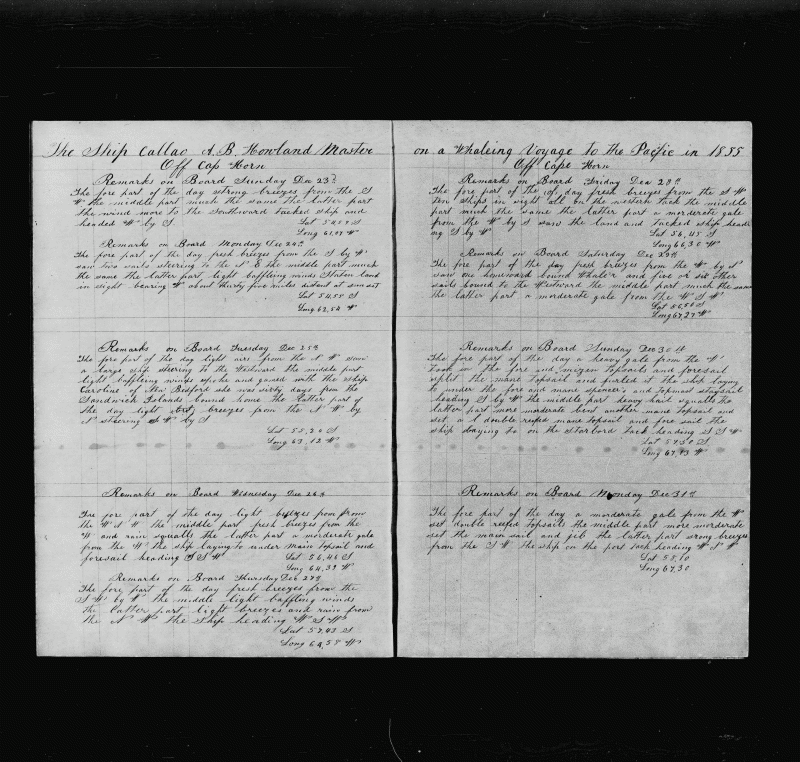 The Ship Callao A. B. Howland Master
Off Cap Horn
Remarks on Board Sunday Dec 23d
The fore part of the day strong breezes from the S
W the middle part much the same the latter part
the wind more to the Southward tacked ship and
headed W by S
Lat 54,54 S
Long 61,47 W
Remarks on Board Monday Dec 24th
The fore part of the day fresh breezes from the S by W
saw two sails steering to the N E the middle part much
the same the latter part light baffling winds Staten land
in sight bearing W about thirty five miles distant at sun set
Lat 54,55 S
Long 62,54 W
Remarks on Board Tuesday Dec 25th
The fore part of the day light airs from the N W saw
a large ship steering to the Westward the middle part
light baffling winds spoke and gamed with the ship
Caroline of New Bedford she was sixty days from the
Sandwich Islands bound home the latter part of
the day light breezes from the N W by
N steering S W by S
Lat 55,20 S
Long 63,12 W
Remarks on Board Wednesday Dec 26th
The fore part of the day light breezes from from
the W N W the middle part fresh breezes from the
W and rain squalls the latter part a morderate gale
from the W the ship laying to under main topsail and
foresail heading S S W
Lat 56,46 S
Long 64,39 W
Remarks on Board Thursday Dec 27th
The fore part of the day fresh breezes from the
S W by W the middle light baffling winds
the latter part light breezes and rain from
the N W the ship heading W S W
Lat 57,43 S
Long 64,58 W
on a Whaleing Voyage to the Pacific in 1855
Off Cape Horn
Remarks on Board Friday Dec 28th
The fore part of the of day fresh breezes from the S W
ten ships in sight all on the western tack the middle
part much the same the latter part a morderate gale
from the W by S saw the land and tacked ship headi
ng S by W
Lat 56,45 S
Long 66,30 W
Remarks on Board Saturday Dec 29th
The fore part of the day fresh breezes from the W by S
saw one homeward bound Whaler and five or six other
sails bound to the Westward the middle part much the same
the latter part a morderate gale from the W S W
Lat 56,50 S
Long 67,27 W
Remarks on Board Sunday Dec 30th
The fore part of the day a heavy gale from the W
took in the fore and mizen topsails and foresail
split the mane topsail and furled it the ship laying
to under the fore and mane spencers and topmast staysail
heading S by W the middle part heavy hail squalls the
latter part more moderate bent another mane topsail and
set a double reefed mane topsail and fore sail the
ship laying to on the starbord tack heading S S W
Lat 57,50 S
Long 67,13 W
Remarks on Board Monday Dec 31st
The fore part of the day a morderate gale from the W
set double reefed topsails the middle part more morderate
set the main sail and jib the latter part strong breezes
from the S W the ship on the port tack heading W N W
Lat 58,10
Long 67,30